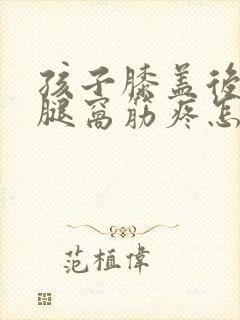 孩子膝盖後
腿窝筋疼怎
范植偉